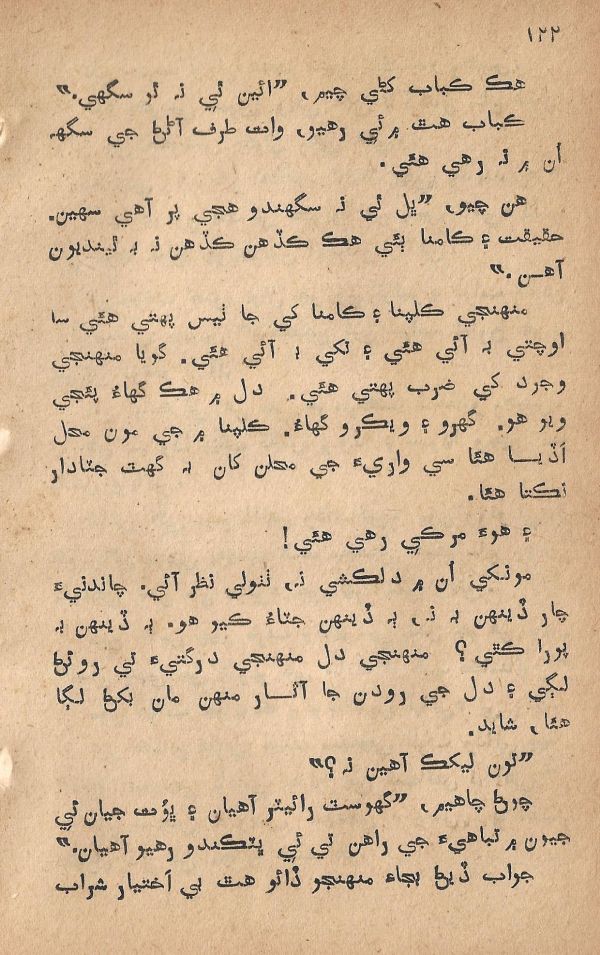 ١٢٢
هڪ ڪباب کڻي چيم، ”ائين ٿي نہ ٿو سگهي.“
ڪباب هٿ ۾ ئي رهيو، وات طرف آڻڻ جي سگهہ
اُن ۾ نہ رهي هئي.
هن چيو، ”ڀل ٿي نہ سگهندو هجي پر آهي سهين.
حقيقت ۽ ڪامنا ٻئي هڪ ڪڏهن ڪڏهن نہ بہ ٿينديون
آهن.“
منهنجي ڪلپنا ۽ ڪامنا کي جا ٺيس پهتي هئي سا
اوچتي بہ آئي هئي ۽ تکي بہ آئي هئي. گويا منهنجي
وجرد کي ضرب پهتي هئي. دل ۾ هڪ گهاءُ پئجي
ويو هو. گهرو ۽ ويڪرو گهاءُ. ڪلپنا ۾ جي مون محل
اَڏيا هئا سي واريءَ جي محلن کان بہ گهٽ جٽادار
نڪتا هئا.
۽ هوءَ مرڪي رهي هئي!
مونکي اُن ۾ دلڪشي نہ، ٺٺولي نظر آئي. چاندنيءَ
چار ڏينهن بہ نہ، ٻہ ڏينهن جٽاءُ ڪيو هو. ٻہ ڏينهن بہ
پورا ڪٿي؟ منهنجي دل منهنجي درگتيءَ تي روئڻ
لڳي ۽ دل جي رودن جا آثار منهن مان بکڻ لڳا
هئا، شايد.
”تون ليکڪ آهين نہ؟“
چوڻ چاهيم، ”گهوسٽ رائيٽر آهيان ۽ ڀُوت جيان ئي
جيون ۾ تباهيءَ جي راهن تي ئي ڀٽڪندو رهيو آهيان.“
جواب ڏيڻ بجاءِ منهنجو ڏائو هٿ بي اَختيار شراب